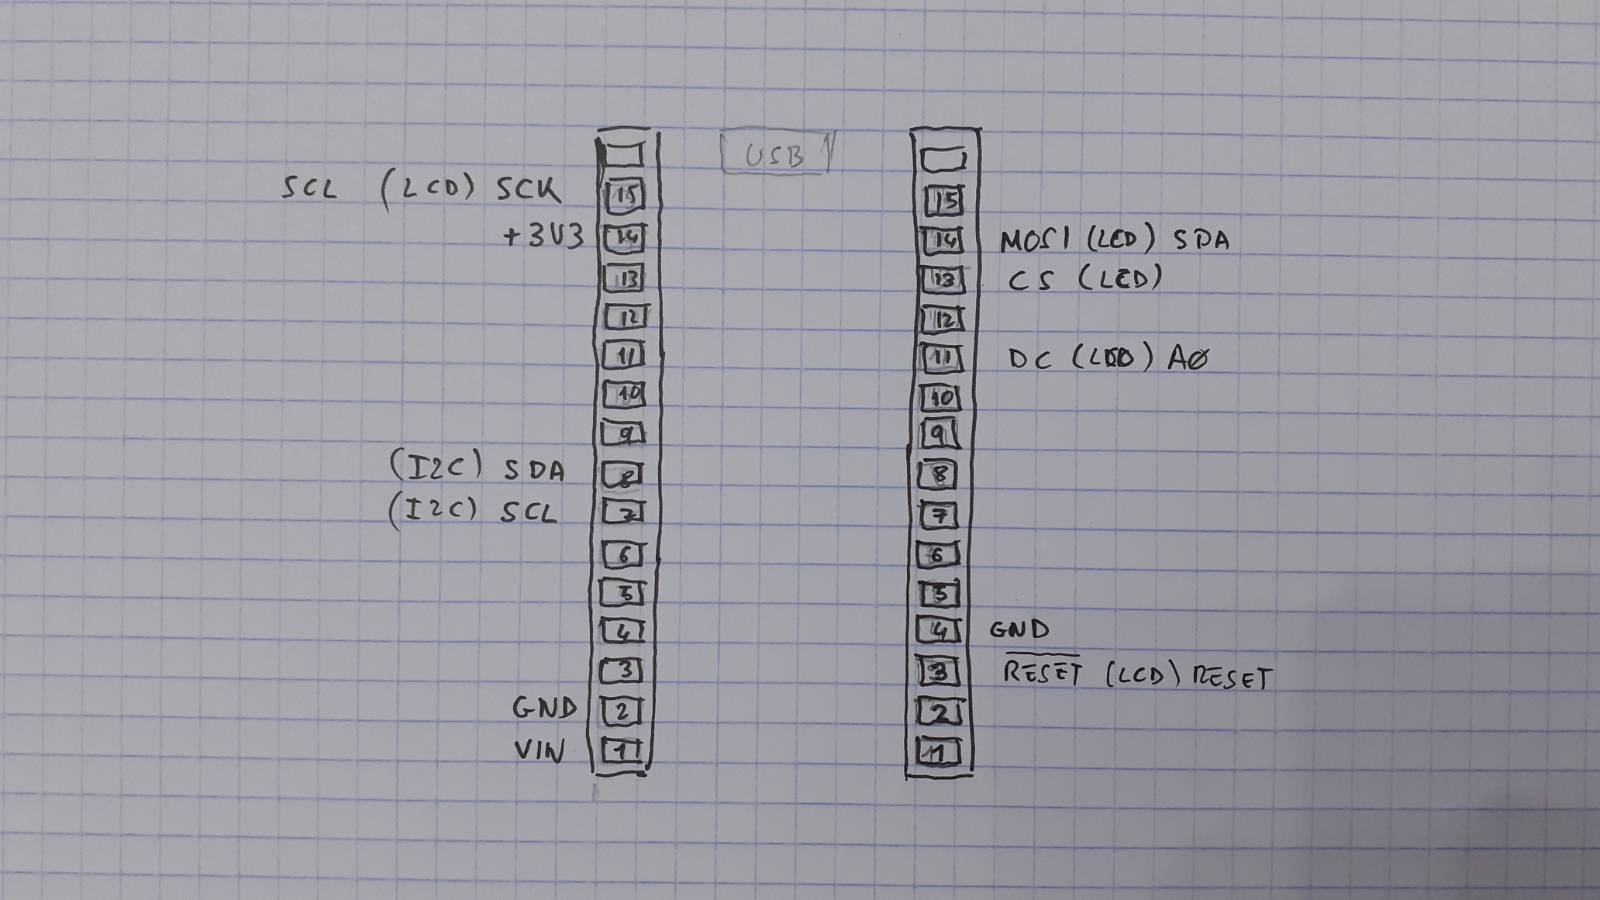 USB
SCL (LCD) SCK 15
+3V3 14
13
12
11
10
9
(I2C) SDA 8
(I2C) SCL 7
6
5
4
3
GND 2
VIN 1
15
14 MOSI (LCD) SDA
13 CS (LCD)
12
11 DC (LCD) A0
10
9
8
7
6
5
4 GND
3 RESET (LCD) RESET
2
1